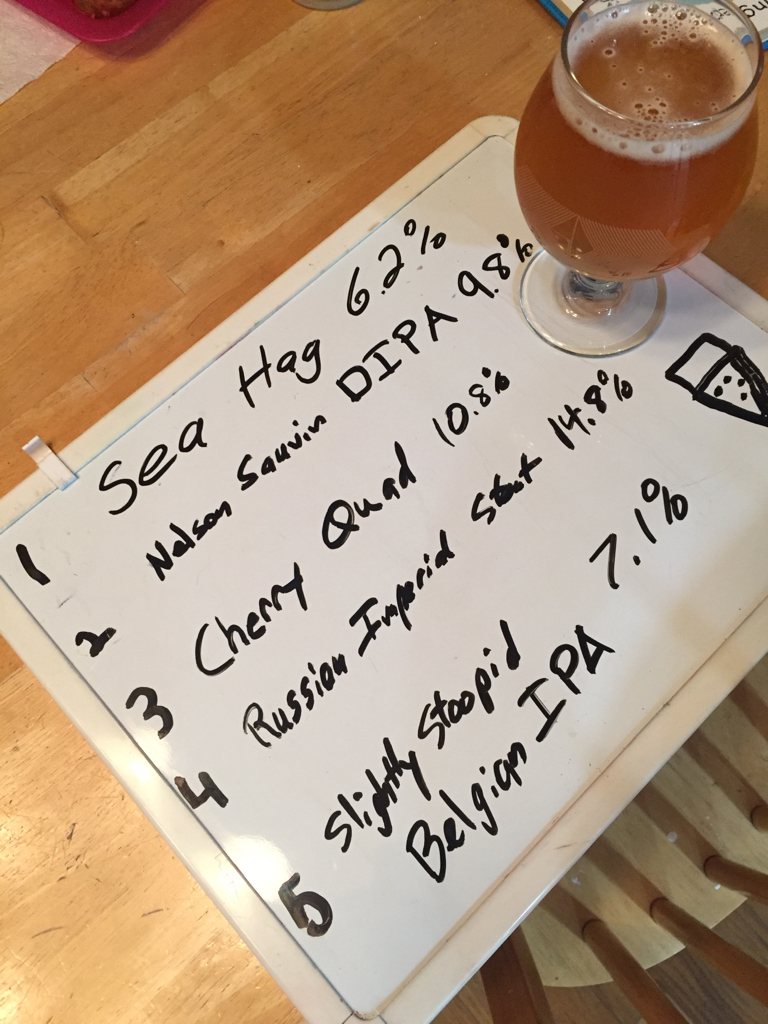 1 Sea Hag 6.2%
2 Nelson Sauvin DIPA 9.8%
3 Cherry Quad 10.8%
4 Russian Imperial Stout 14.8%
5 Slightly Stoopid
Belgian IPA 7.1%